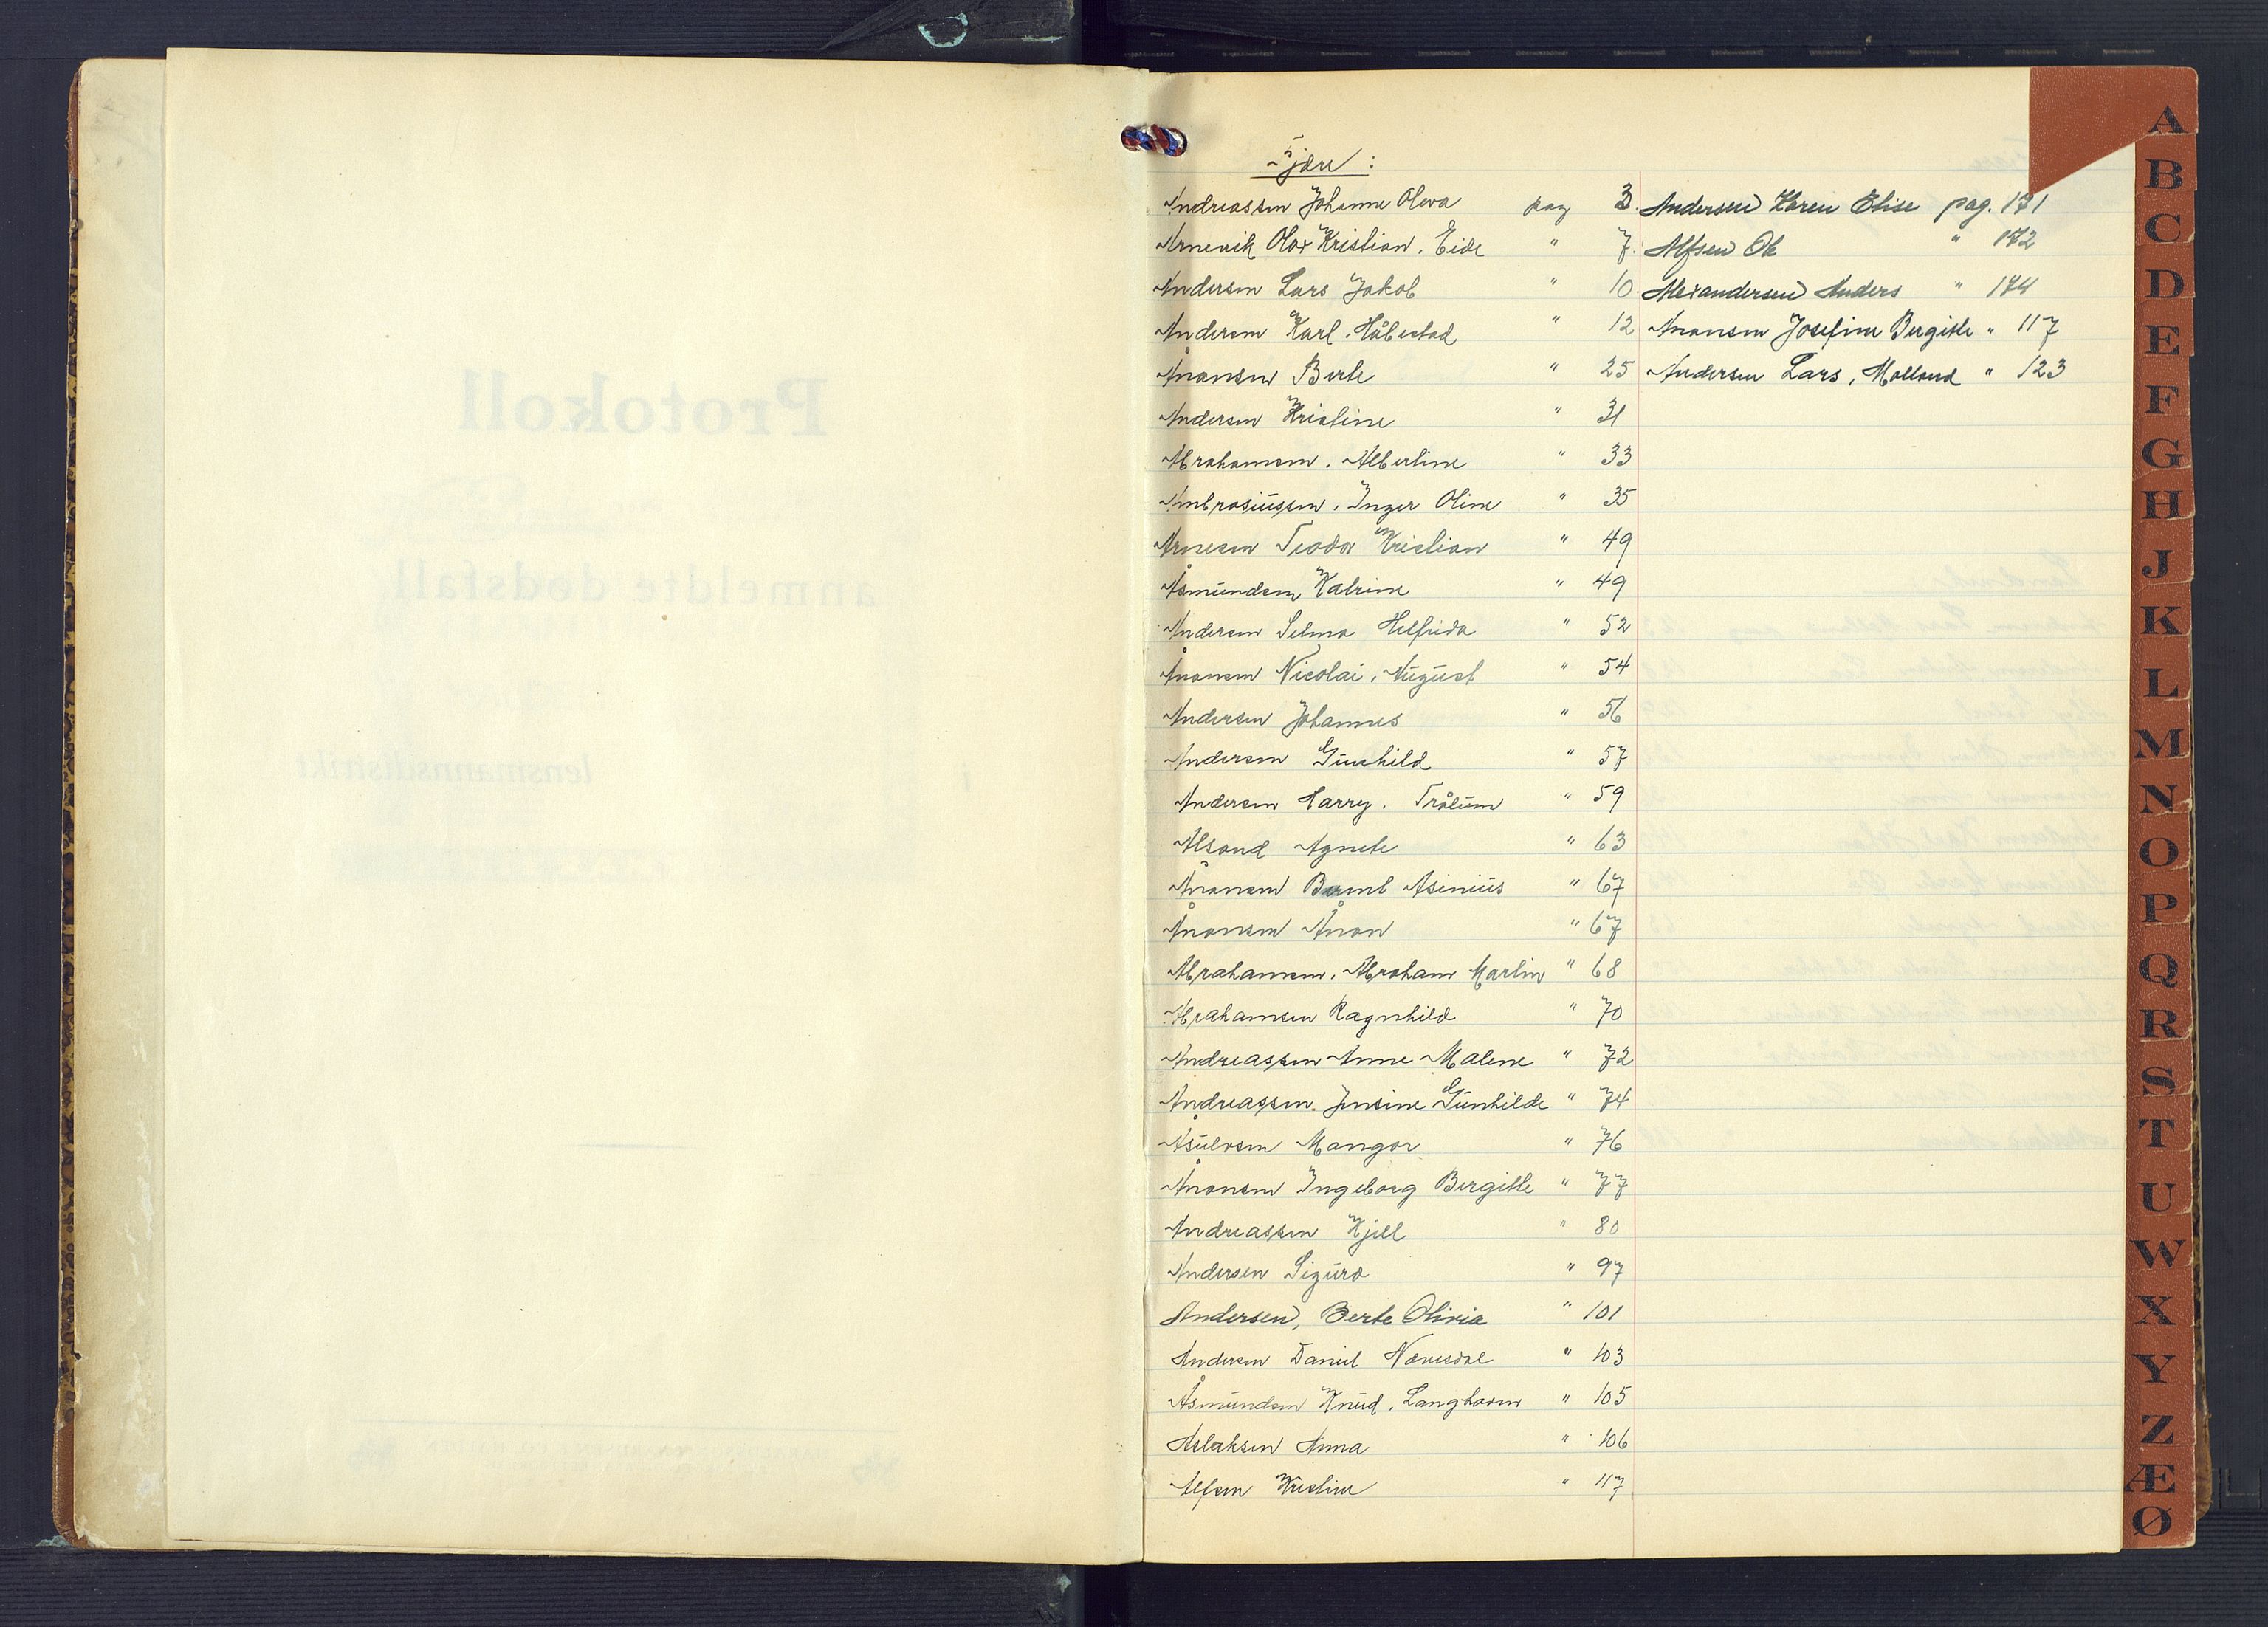 Fjære :
Andreassen Johanne Oleva pag 3.
Arnevik Olav Kristian. Eide " 7.
Andersen Lars Jakob " 10
Andersen Karl. Håbestad " 12
Ånonsen Berte " 25
Andersen Kristine " 31
Abrahamsen. Albertine " 33
Ambrosiussen. Inger Oline " 35
Arnesen Teodor Kristian " 49
Åsmundsen Katrine " 49
Andersen Selma Helfrida " 52
Ånonsen Nicolai. August " 54
Andersen Johannes " 56
Andersen Gunhild " 57
Andersen Harry. Trålum " 59
Alsand Agnete " 63
Ånonsen Asinius " 67
Ånonsen Ånon " 67
Abrahamsen. Abraham Martin " 68
Abrahamsen Ragnhild " 70
Andreassen Anne Malene " 72
Andreassen. Jensine Gunhilde " 74
Åsulvsen Mangor " 76
Ånonsen Ingeborg Bergitte " 77
Andreassen Kjell " 80
Andersen Sigurd " 97
Andersen, Berte Olivia " 101
Andersen Daniel Nævesdal " 103
Åsmundsen Knud. " 105
Aslaksen Anna " 106
Alfsen Kristine " 117
Andersen Karen Elise pag. 171
Alfsen Ole " 172
Alexandersen Anders " 174
Ånonsen Josefine Bergitte " 117
Andersen Lars, Molland " 123
A
B
C
D
E
F
G
H
J
K
L
M
N
O
P
Q
R
S
T
U
W
X
Y
Z
Æ
Ø
Protokoll
anmeldte dødsfall
i lensmannsdistrikt